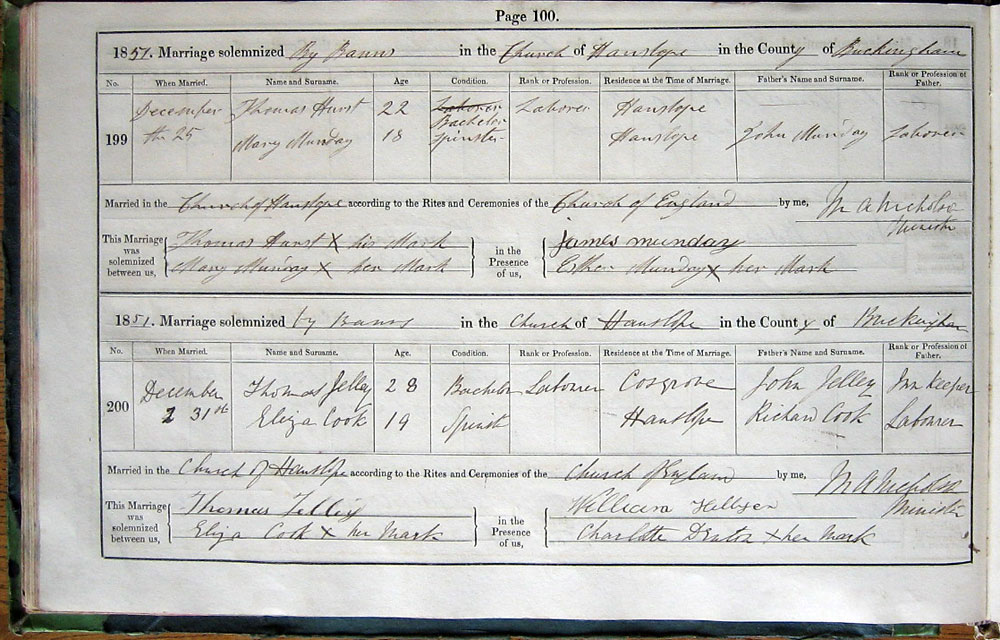 Page 100.
1851. Marriage solemnized By Banns in the Church of Hanslope in the County of Buckingham
No. When Married. Name and Surname. Age Condition. Rank or Profession. Residence at the Time of Marriage. Father's Name and Surname. Rank or Profession of Father.
199 December Thomas Hurst 22 Laborer Bachelor Laborer Hanslope
the 25 Mary Munday 18 Spinster Hanslope John Munday Laborer
Married in the Church of Hanslope according to the Rites and Ceremonies of the Church of England by me, M A Nicholson
Minister
This Marriage was solemnized between us, Thomas Hurst X his Mark in the Presence of us, James Munday
Mary Munday X her Mark Esther Munday X her Mark
1851. Marriage solemnized by Banns in the Church of Hanslope in the County of Buckingham
No. When Married. Name and Surname. Age. Condition. Rank or Profession. Residence at the Time of Marriage. Father's Name and Surname. Rank or Profession of Father.
200 December Thomas Jelley 28 Bachelor Labourer Cosgrove John Jelley Inn Keeper
31st Eliza Cook 19 Spinst Hanslope Richard Cook Labourer
Married in the Church of Hanslope according to the Rites and Ceremonies of the Church of England by me, M A Nicholson
Minister
This Marriage was solemnized between us, Thomas in the Presence of us, William
Eliza Cook X her Mark Charlotte Denton X her Mark